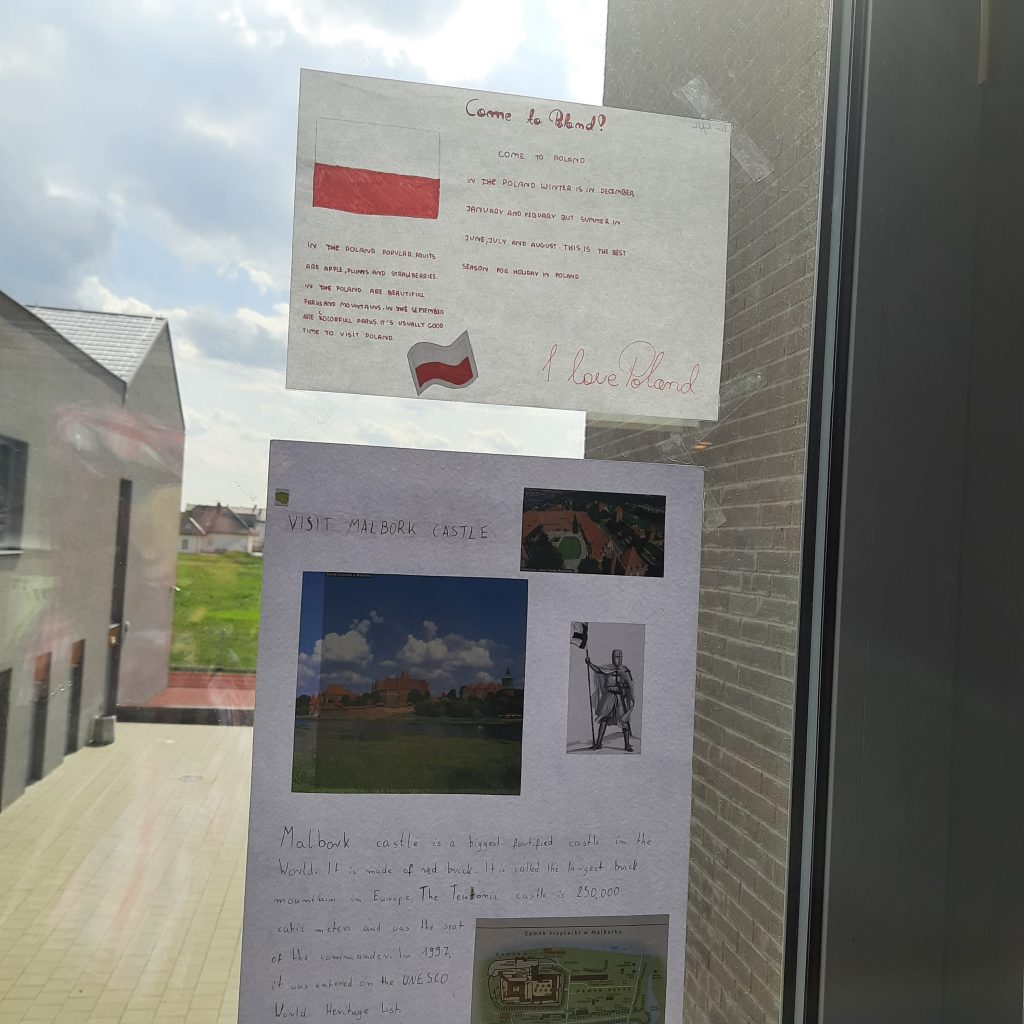 Come to Poland?
COME TO POLAND.
IN THE POLAND WINTER IS IN DECEMBER
JANUARY AND FEBUARY BUT SUMMER IN
JUNE, JULY AND AUGUST. THIS IS THE BEST
SEASON FOR HOLIDAY IN POLAND
IN THE POLAND POPULAR FRUITS
ARE APPLE, PLUMS AND STRAWBERRIES.
IN THE POLAND ARE BEAUTIFULL
PARKS AND MOUNTAINS. IN THE SEPTEMBER
ARE KOLORFULL PARKS. IT'S USUALLY GOOD
TIME TO VISIT POLAND.
I love Poland
VISIT MALBORK CASTLE
Malbork castle is a biggest fortified castle in the
World. It is made of red brick. It is called the largest brick
mountain in Europe. The Teutonic castle is 250,000
cubic meters and was the seat
of the commander. In 1997,
it was entered on the UNESCO
World Heritage List.
Zamek krzyżacki w Malborku